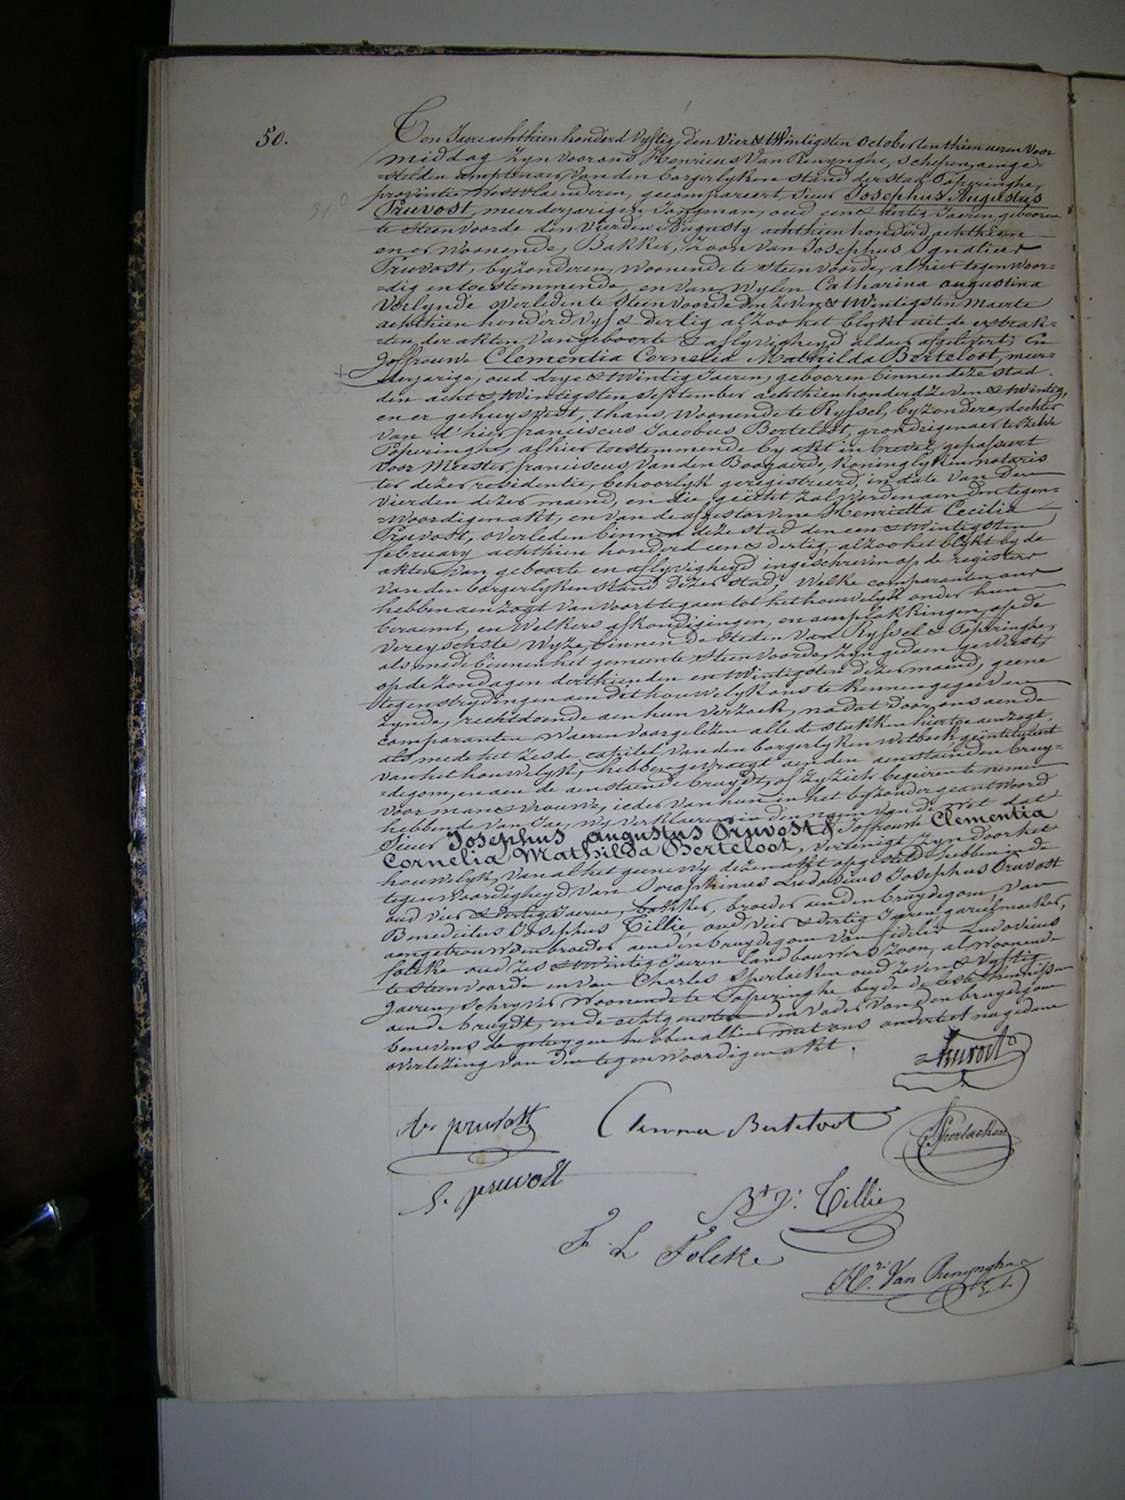 50.
Ten Jaere achthien honderd vyftig, den vier & twintigsten october ten thien ueren voor
middag zyn voor ons Henricus Van Renynghe, schepen, aenge-
-stelden amptenaer van den borgerlyken stand der stad Poperinghe,
provintie Westvlaenderen, gecompareert, sieur Josephus Augustus
Pruvost, meerderjarigen Jongman, oud een & dertig Jaeren, gebooren
te Steenvoorde den vierden Augusty achthien honderd achthien
en er woonende, Bakker, zoon van Josephus Ignatius
Pruvost, byzonderen, woonende te Steenvoorde, alhier tegenwoor-
-dig en toestemmende, en van wylen Catharina augustina
Verlynde overleden te Steenvoorde den zeven & twintigsten Maerte
achthien honderd vyf & dertig alzoo het blykt uit de extrak-
-ten der akten van geboorte & aflyvigheyd aldaer afgelevert, En
Joffrouwe Clementia Cornelia Mathilda Berteloot, meer-
derjarige, oud drye & twintig Jaeren, gebooren binnen deze stad
den acht & twintigsten September achthien honderd zeven & twintig,
en er gehuysvest, thans woonende te Ryssel, byzondere, dochter
van d'heer franciscus Jacobus Berteloot, grondeigenaer te zelve
Poperinghe, alhier toestemmende by akt in brevet gepasseert
voor Meester franciscus Van den Bogaerde, koninglyken notaris
ter dezer residentie, behoorlyk geregistreerd, in date van den
vierden dezer maend, en die gehecht zal worden aen den tegen-
-woordigen akt, en van de afgestorvene Henrietta Cecilia
Pruvost, overleden binnen deze stad den een & twintigsten
february achthien honderd een & dertig, alzoo het blykt by de
akten van geboorte en aflyvigheyd ingeschreven op de registers
van den borgerlyken stand dezer stad; Welke comparanten ons
hebben aenzogt van voort te gaen tot het houwelyk onder hun
beraemt, en welkers afkondigingen, en aenplakkingen, op de
vereyschte wyze, binnen de Steden van Ryssel & Poperinghe,
als mede binnen het gemeente Steenvoorde, zyn gedaen geweest,
op de zondagen derthienden en twintigsten dezer maend, geene
tegenstrydingen aen dit houwelyk ons te kennen gegeven
zynde, rechtdoende aen hun verzoek, na dat door ons aen de
comparanten waeren voorgelezen alle de stukken hiertoe aenzogt,
als mede het zesde capitel van den borgerlyken Wetboek geintituleert
van het houwelyk, hebben gevraegt aen den aenstaenden bruy-
-degom, en aen de aenstaende bruydt, of zy zich begeeren te nemen
voor man & vrouwe, ieder van hun in het byzonder geantwoord
hebbende van Jae, wy verklaeren in den naem van de wet dat
Sieur Josephus augustus Pruvost & Joffrouw Clementia
Cornelia Mathilda Berteloot, verenigt zyn door het
houwelyk, van al het geene wy dezen akt opgesteld hebben in de
tegenwoordigheyd van Seraphinus Ludovicus Josephus Pruvost
oud vier & dertig Jaeren, bakker, broeder aen den bruydegom, van
Benedictus Josephus Tillie, oud vier & dertig Jaeren, gareelmaeker,
aengetrouwden broeder aen den bruydegom van fidelis Ludovicus
folcke oud zes & twintig Jaeren landbouwers zoon, al woonende
te Steenvoorde en van Charles Sperlacken oud zeven & vyftig
Jaeren, schryver woonende te Poperinghe beyde de leste kennissen
aen de bruydt, en de echtgenoten den vader van den bruydegom
benevens de getuygen hebben alhier met ons onderteekt na gedaene
overlezing van den tegenwoordigen akt.
Pruvost
A. pruvost
Clemna Berteloot
Sperlacken
S. pruvost
Bt. J. Tillie
F. L Folcke
Hri. Van Renynghe